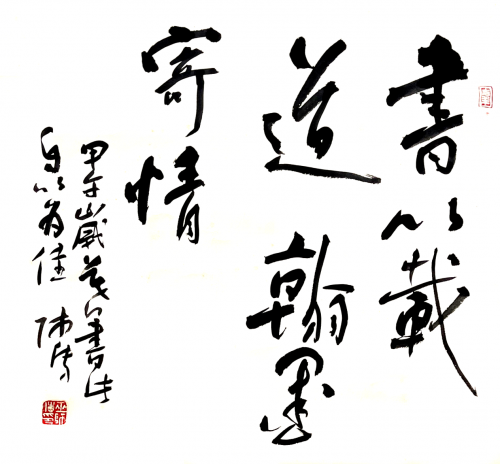 書以載
道翰墨
寄情
甲午歲
書法
自以為佳